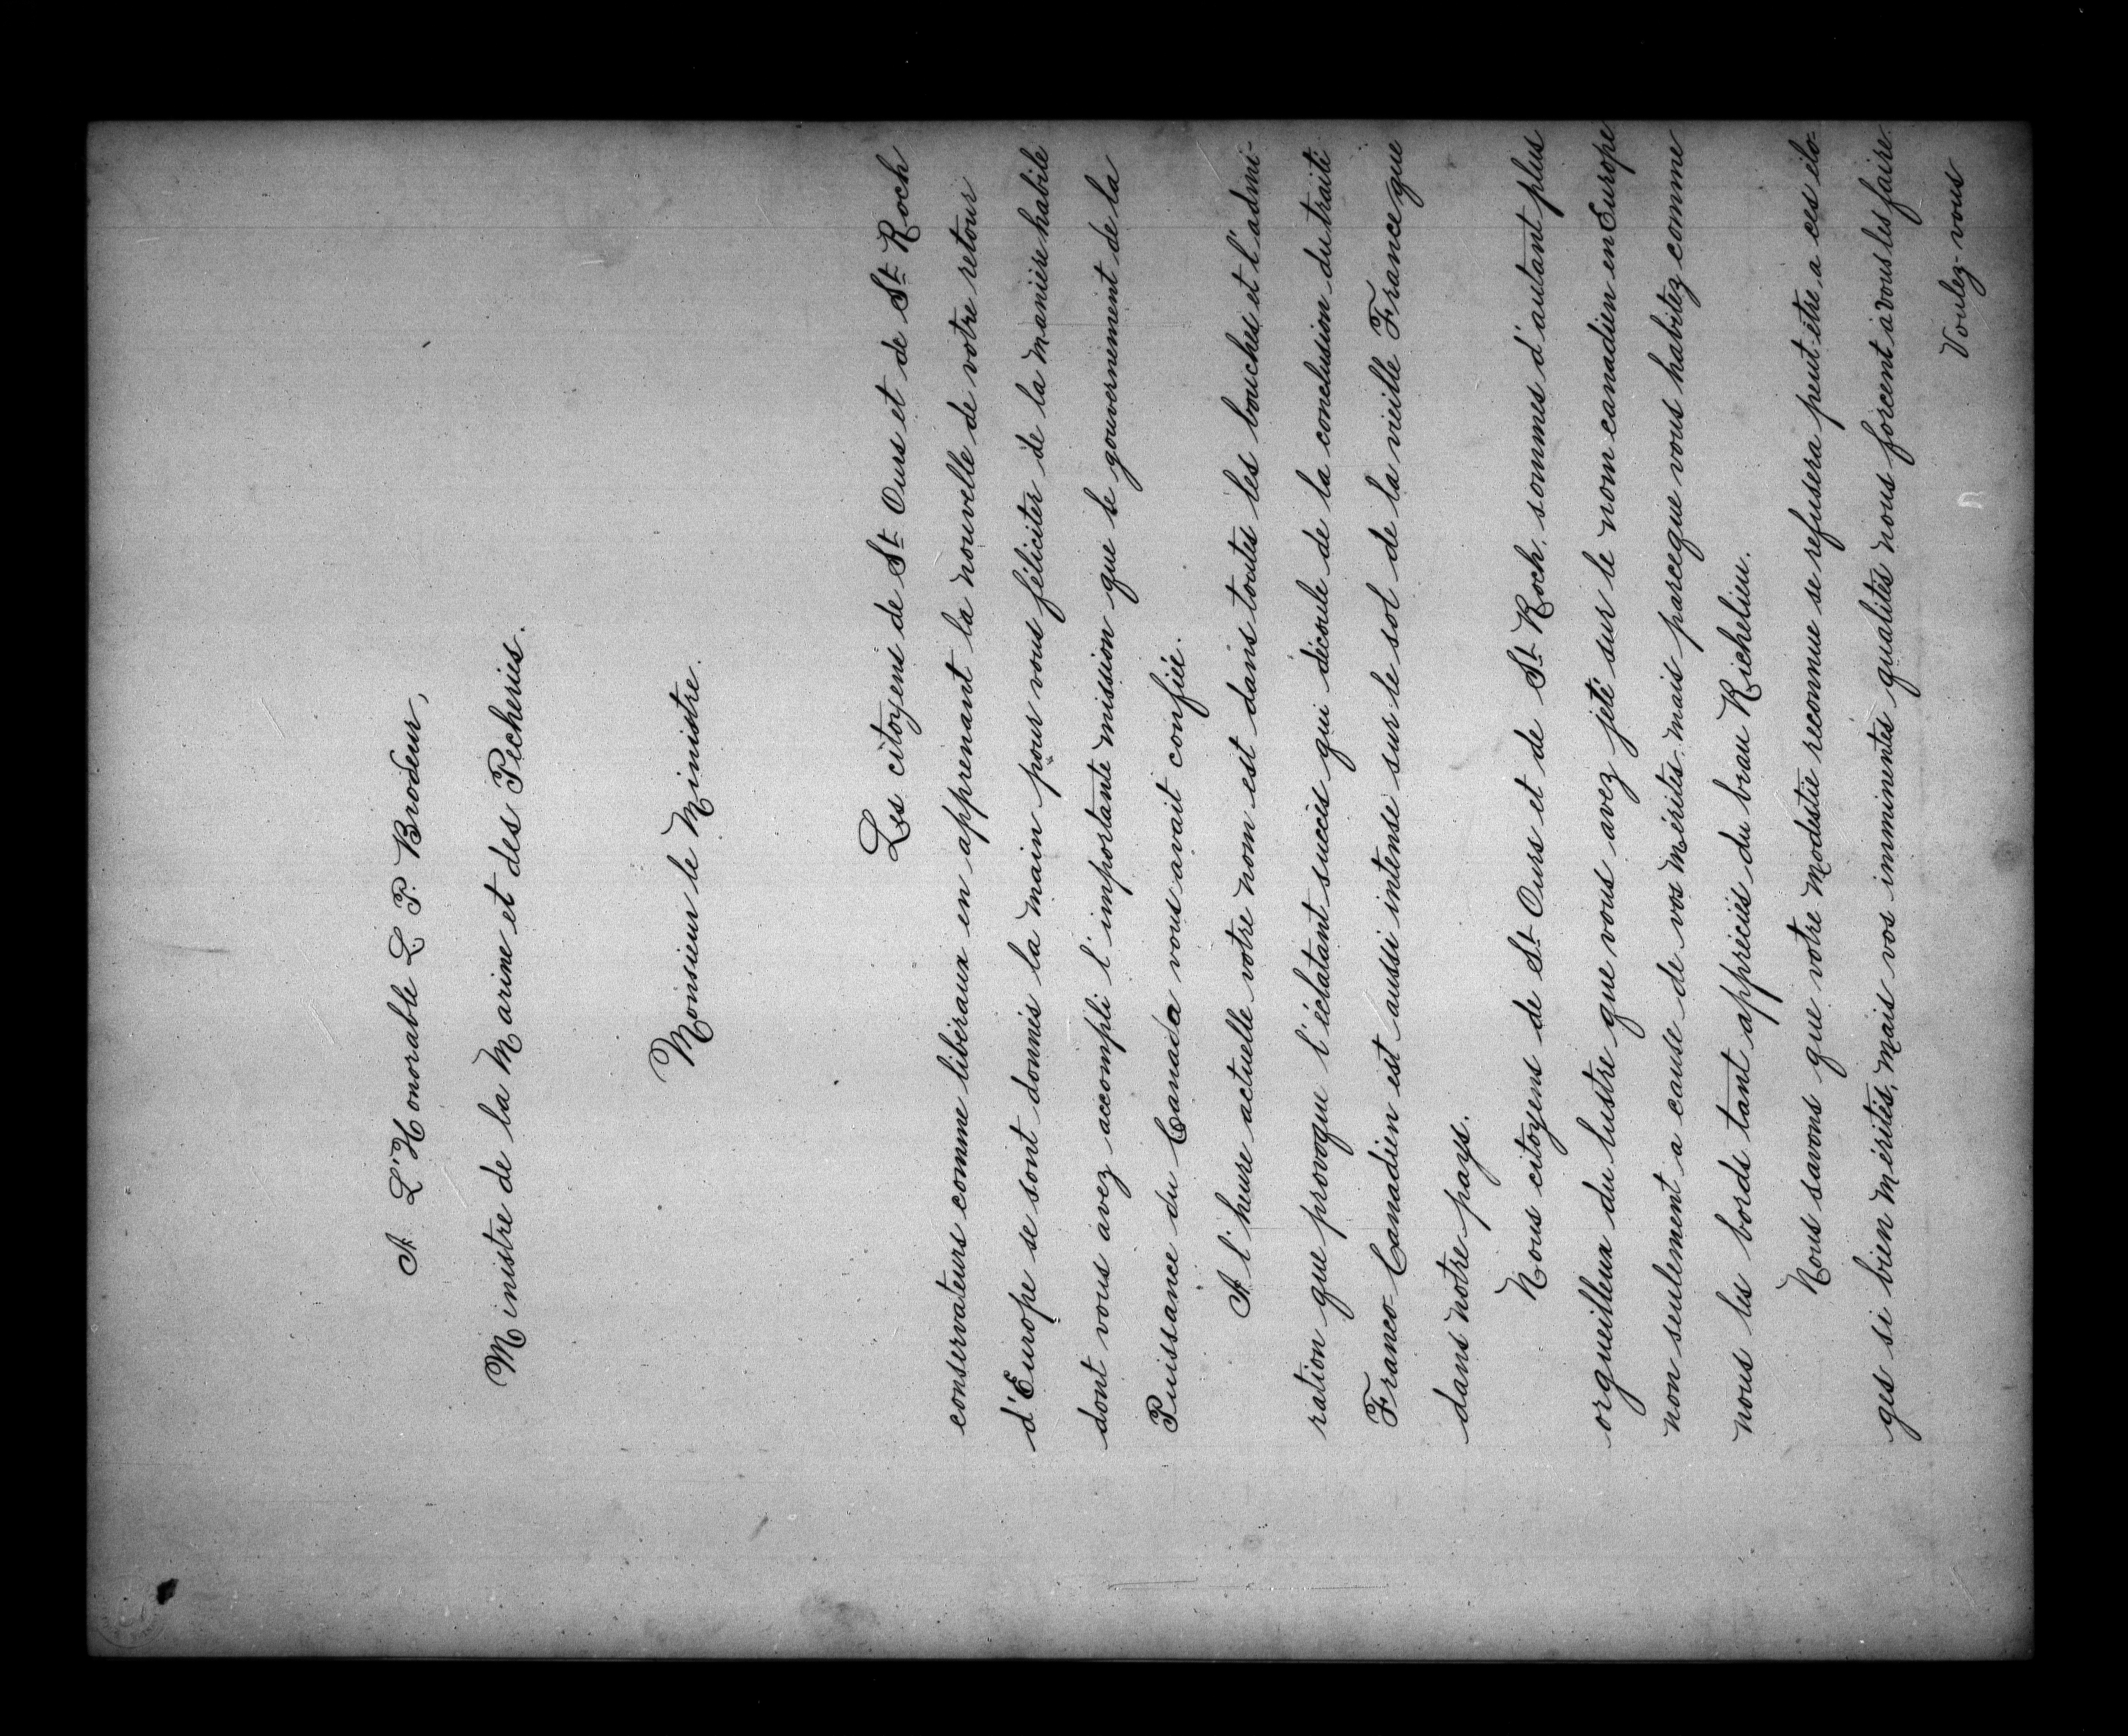 A L'Honorable L. P. Brodeur,
Ministre de la Marine et des Pêcheries.
Monsieur le Ministre.
Les citoyens de St Ours et de St Roch
conservateurs comme libéraux en apprenant la nouvelle de votre retour
d'Europe se sont donnés la main pour vous féliciter de la manière habile
dont vous avez accompli l'importante mission que le gouvernement de la
Puissance du Canada vous avait confiée.
A l'heure actuelle votre nom est dans toutes les bouches et l'admi-
ration que provoque l'éclatant succès qui découle de la conclusion du traité
Franco-Canadien est aussi intense sur le sol de la vieille France que
dans notre pays.
Nous citoyens de St Ours et de St Roch, sommes d'autant plus
orgueilleux du lustre que vous avez jeté sur le nom canadien en Europe
non seulement a cause de vos mérites, mais parceque vous habitez comme
nous les bords tant appréciés du beau Richelieu.
Nous savons que votre modestie reconnue se refusera peut-être a ces élo-
ges si bien mérités, mais vos imminentes qualités nous forcent à vous les faire.
Voulez-vous